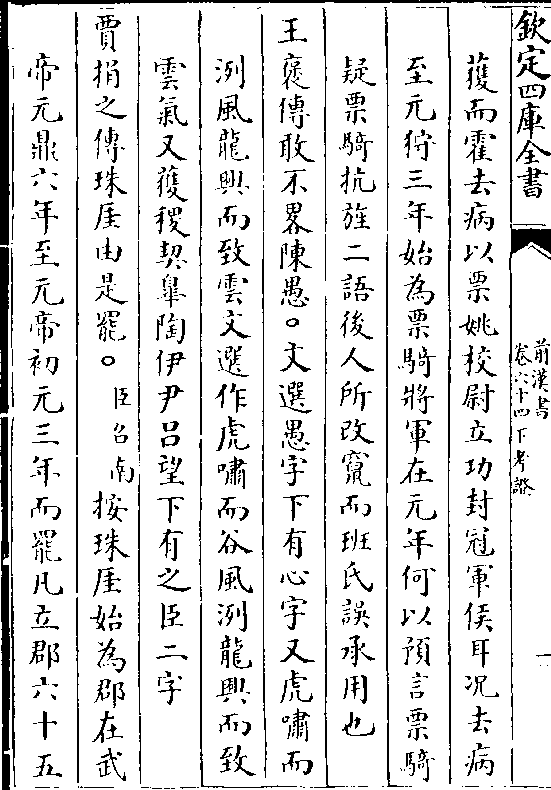 欽定四庫全書
前漢書
卷六十四下考證
一
獲而霍去病以票姚校尉立功封冠軍侯耳况去病
至元狩三年始為票騎將軍在元年何以預言票騎
疑票騎抗旌二語後人所改竄而班氏誤承用也
王襃傳敢不畧陳愚○文選愚字下有心字又虎嘯而
洌風龍興而致雲文選作虎嘯而谷風洌龍興而致
雲氣又獲稷契臯陶伊尹吕望下有之臣二字
賈捐之傳珠厓由是罷○臣召南按珠厓始為郡在武
帝元鼎六年至元帝初元三年而罷凡立郡六十五